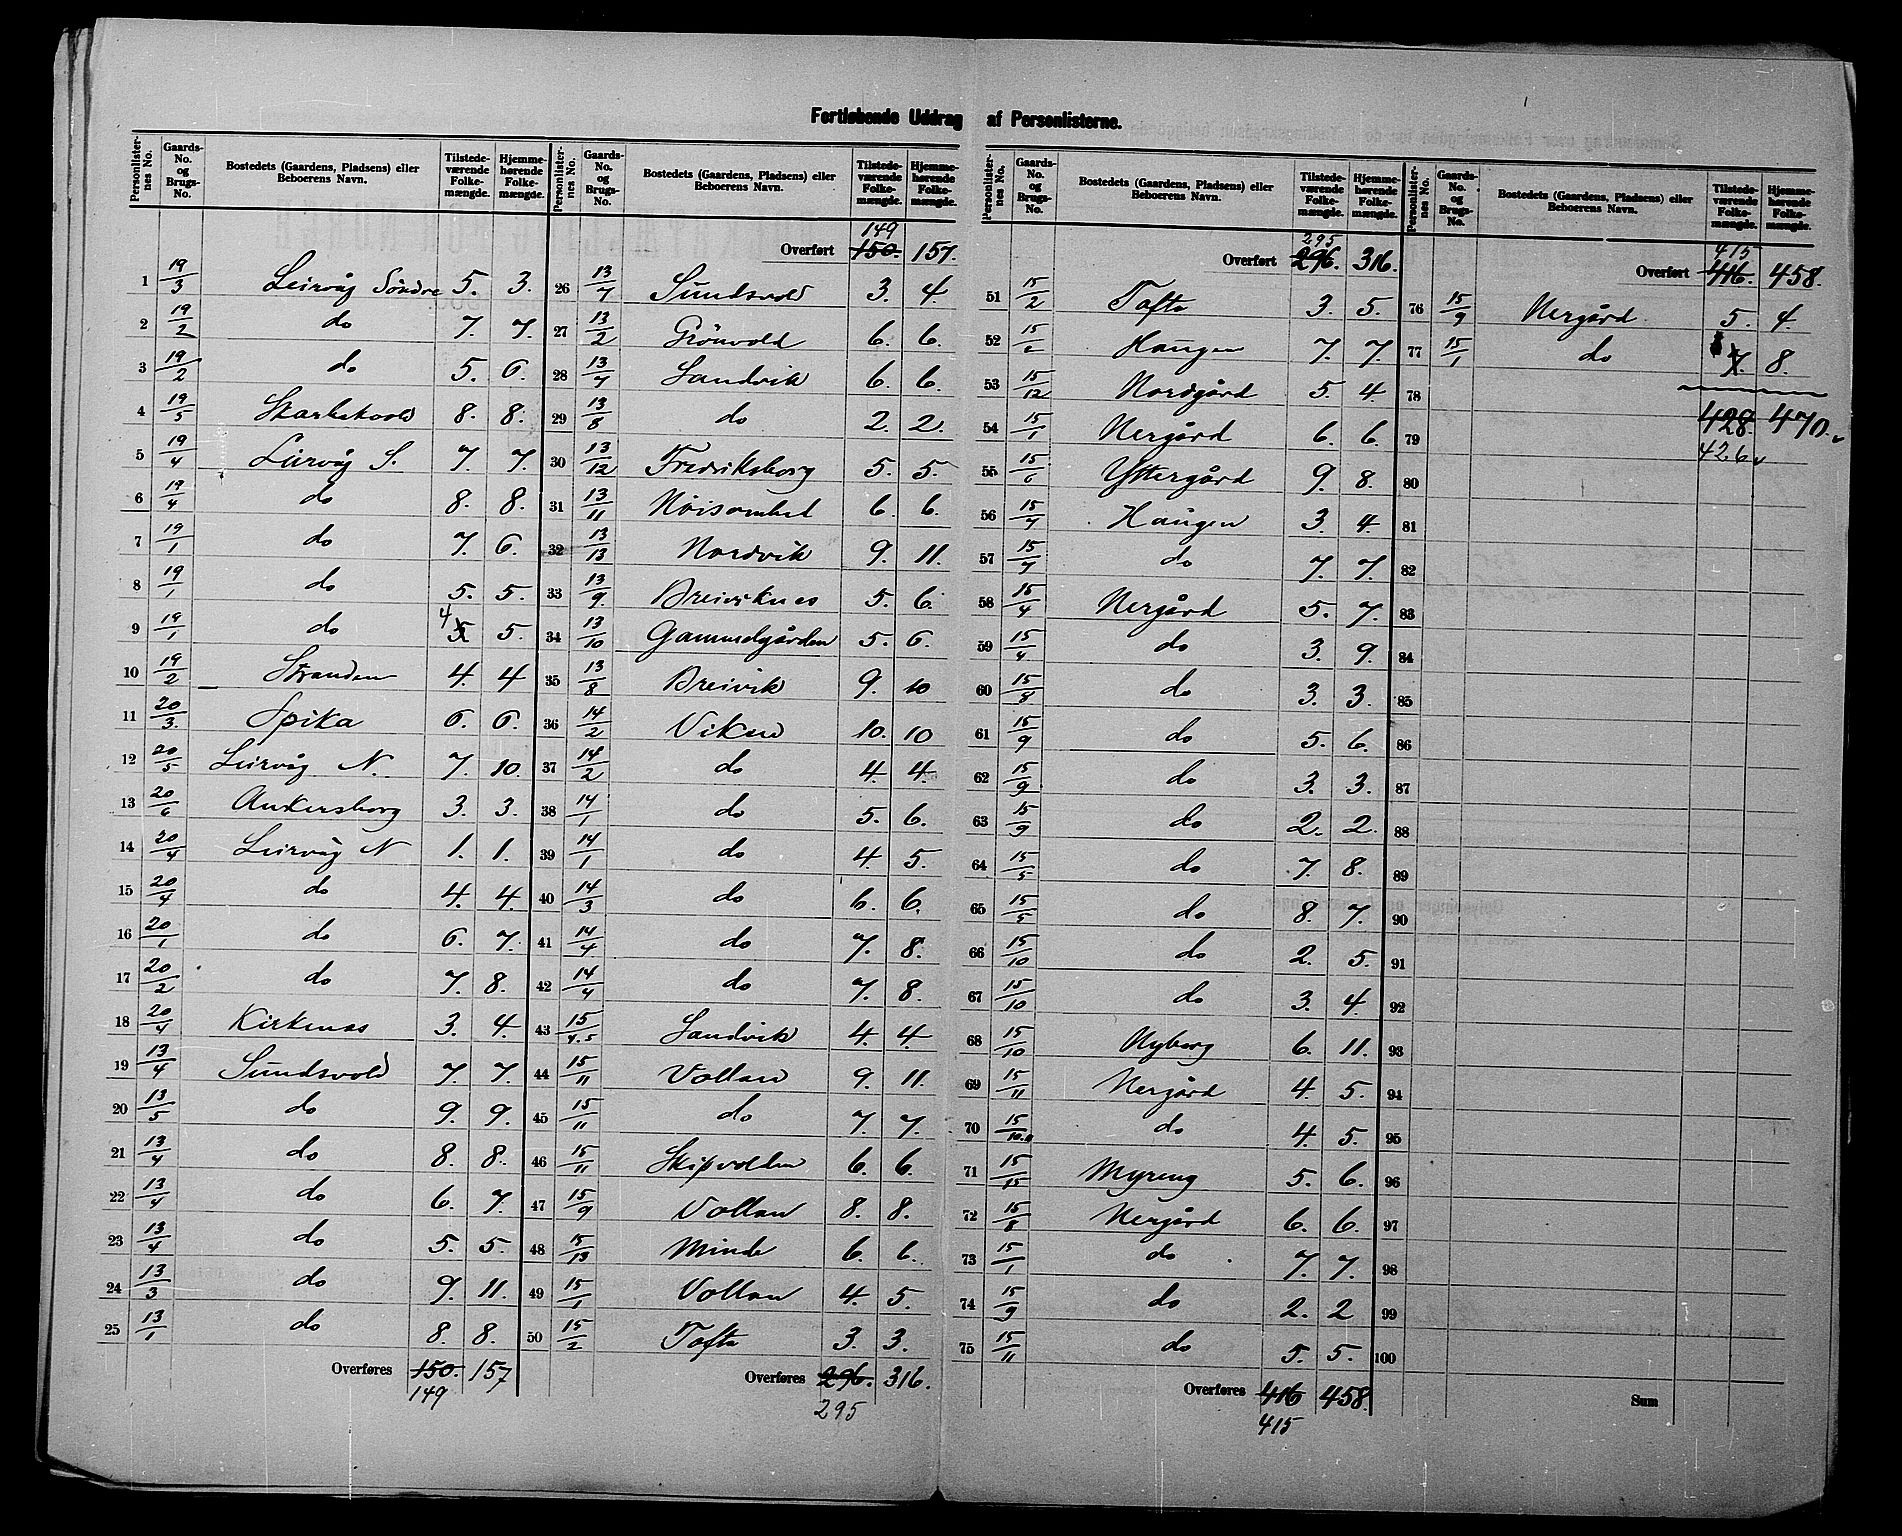 Fortløbende Uddrag af Personlisterne.
Personlister-nes No. Gaards-No. og Brugs-No. Bostedets (Gaardens, Pladsens) eller Beboerens Navn. Tilstede-værende Folke-mængde. Hjemme-hørende Folke-mængde.
1 19/3 Leirvåg Söndre 5. 3.
2 19/2 do 7. 7.
3 19/2 do 5. 6.
4 19/5 8. 8.
5 19/4 Leirvåg S. 7. 7.
6 19/4 do 8. 8.
7 19/1 do 7. 6.
8 19/1 do 5. 5.
9 19/1 do 4 5. 5.
10 19/2 Stranden 4. 4
11 20/3. Spika 6. 6.
12 20/5 Leirvåg N. 7. 10.
13 20/6 Ankersborg 3. 3.
14 20/4 Leirvåg N 1. 1.
15 20/4 do 4. 4.
16 20/1 do 6. 7.
17 20/2 do 7. 8.
18 20/4 Kirkenæs 3. 4.
19 13/4 Sundsvold 7. 7.
20 13/5 do 9. 9.
21 13/4 do 8. 8.
22 13/4 do 6. 7.
23 13/4 do 5. 5.
24 13/3 do 9. 11.
25 13/1 do 8. 8.
Overføres 150. 157
149
Personlister-nes No. Gaards-No. og Brugs-No. Bostedets (Gaardens, Pladsens) eller Beboerens Navn. Tilstede-værende Folke-mængde. Hjemme-hørende Folke-mængde.
149
Overført 150. 157.
26 13/7 Sundsvold 3. 4
27 13/2 Grönvold 6. 6.
28 13/7 Sandvik 6. 6.
29 13/8 do 2. 2.
30 13/12 Fredriksborg 5. 5.
31 13/11 Nöisomhed 6. 6.
32 13/13 Nordvik 9. 11.
33 13/9. Breiviknes 5. 6.
34 13/10 Gammelgården 5. 6.
35 13/8 Breivik 9. 10
36 14/2 Viken 10. 10
37 14/2 do 4. 4.
38 14/1 do 5. 6.
39 14/1 do 4 5.
40 14/3 do 6. 6.
41 14/4 do 7. 8.
42 14/4 do 7. 8.
43 15/4.5 Sandvik 4. 4.
44 15/11 Vollan 9. 11.
45 15/11 do 7. 7.
46 15/11 Skipvollen 6. 6.
47 15/9 Vollan 8. 8.
48 15/13 Minde 6. 6.
49 15/1 Vollan 4. 5.
50 15/2 Tofte 3. 3.
Overføres 296. 316.
295
Personlister-nes No. Gaards-No. og Brugs-No. Bostedets (Gaardens, Pladsens) eller Beboerens Navn. Tilstede-værende Folke-mængde. Hjemme-hørende Folke-mængde.
295
Overført 296. 316.
51 15/2 Tofte 3. 5.
52 15/6 Haugen 7. 7.
53 15/12 Nordgård 5. 4
54 15/1 Nergård 6. 6.
55 15/6 Yttergård 9. 8.
56 15/7 Haugen 3. 4
57 15/7 do 7. 7.
58 15/4 Nergård 5. 7.
59 15/4. do 3. 9.
60 15/8 do 3. 3.
61 15/9 do 5. 6.
62 15/9 do 3. 3.
63 15/9 do 2. 2.
64 15/5 do 7. 8.
65 15/5 do 8. 7.
66 15/10 do 2. 5.
67 15/10 do 3. 4
68 15/10 Nyborg 6. 11.
69 15/11 Nergård 4. 5.
70 15/10.11 do 4. 5.
71 15/15 Myreng 5. 6.
72 15/8 Nergård 6. 6.
73 15/1 do 7. 7.
74 15/9 do 2. 2
75 15/11 do 5. 5.
Overføres 416 458.
415
Personlister-nes No. Gaards-No. og Brugs-No. Bostedets (Gaardens, Pladsens) eller Beboerens Navn. Tilstede-værende Folke-mængde. Hjemme-hørende Folke-mængde.
415
Overført 416. 458.
76 15/9 Nergård 5. 4.
77 15/1 do 7. 8.
78
428. 470.
79
426
80
81
82
83
84
85
86
87
88
89
90
91
92
93
94
95
96
97
98
99
100
Sum